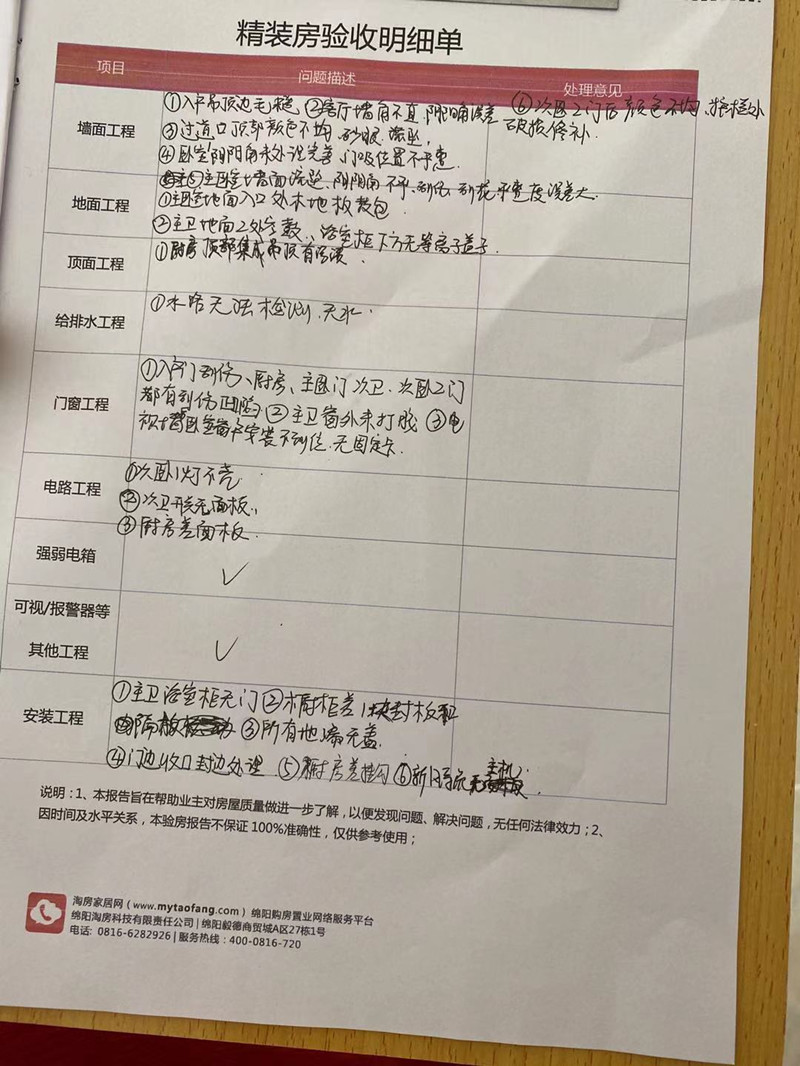 精装房验收明细单
项目 问题描述 处理意见
墙面工程
①入户吊顶边毛糙 ②客厅墙角不直 阴阳角误差 ⑥次卧2门后颜色不均
③过道口顶部颜色不均 砂眼 破损修补
④卧室阴阳角未处理完善 门吸位置不平整
⑤主卧室墙面 阴阳角不平 平整度误差大
地面工程
①主卧室地面入口处木地板鼓包
②主卫地面2处空鼓、浴室柜下方无等离子盖子
顶面工程
①厨房顶部集成吊顶有
给排水工程
①水路无法检测 无水.
门窗工程
①入户门划伤、厨房、主卧门 次卫、次卧2门
都有划伤凹陷 ②主卫窗外未打胶 ③电
视墙卧室窗户安装不到位 无固定卡
电路工程
①次卧1灯不亮
②次卫开关无面板
③厨房差面板
强弱电箱
✓
可视/报警器等
其他工程
✓
安装工程
①主卫浴室柜无门 ②橱柜差1块封板和
隔板 ③所有地漏无盖
④门边收口封边处理 ⑤厨房差挂勾 ⑥新风系统无主机.
说明：1、本报告旨在帮助业主对房屋质量做进一步了解，以便发现问题、解决问题，无任何法律效力；2、
因时间及水平关系，本验房报告不保证100%准确性，仅供参考使用；
淘房家居网（www.mytaofang.com）绵阳购房置业网络服务平台
绵阳淘房科技有限责任公司 | 绵阳毅德商贸城A区27栋1号
电话: 0816-6282926 | 服务热线：400-0816-720